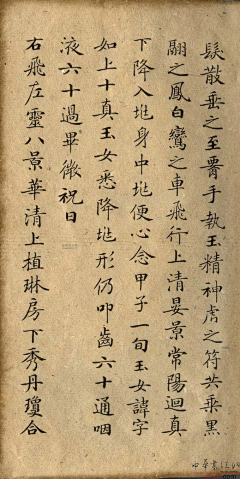 鬚散垂之至骭手執玉精神虎之符共乘黑
翮之鳳白鸞之車飛行上清晏景常陽迴真
下降入地身中地便心念甲子一旬玉女諱字
如上十真玉女悉降地形仍叩齒六十通咽
液六十過畢微祝曰
右飛左靈八景華清上植琳房下秀丹瓊合